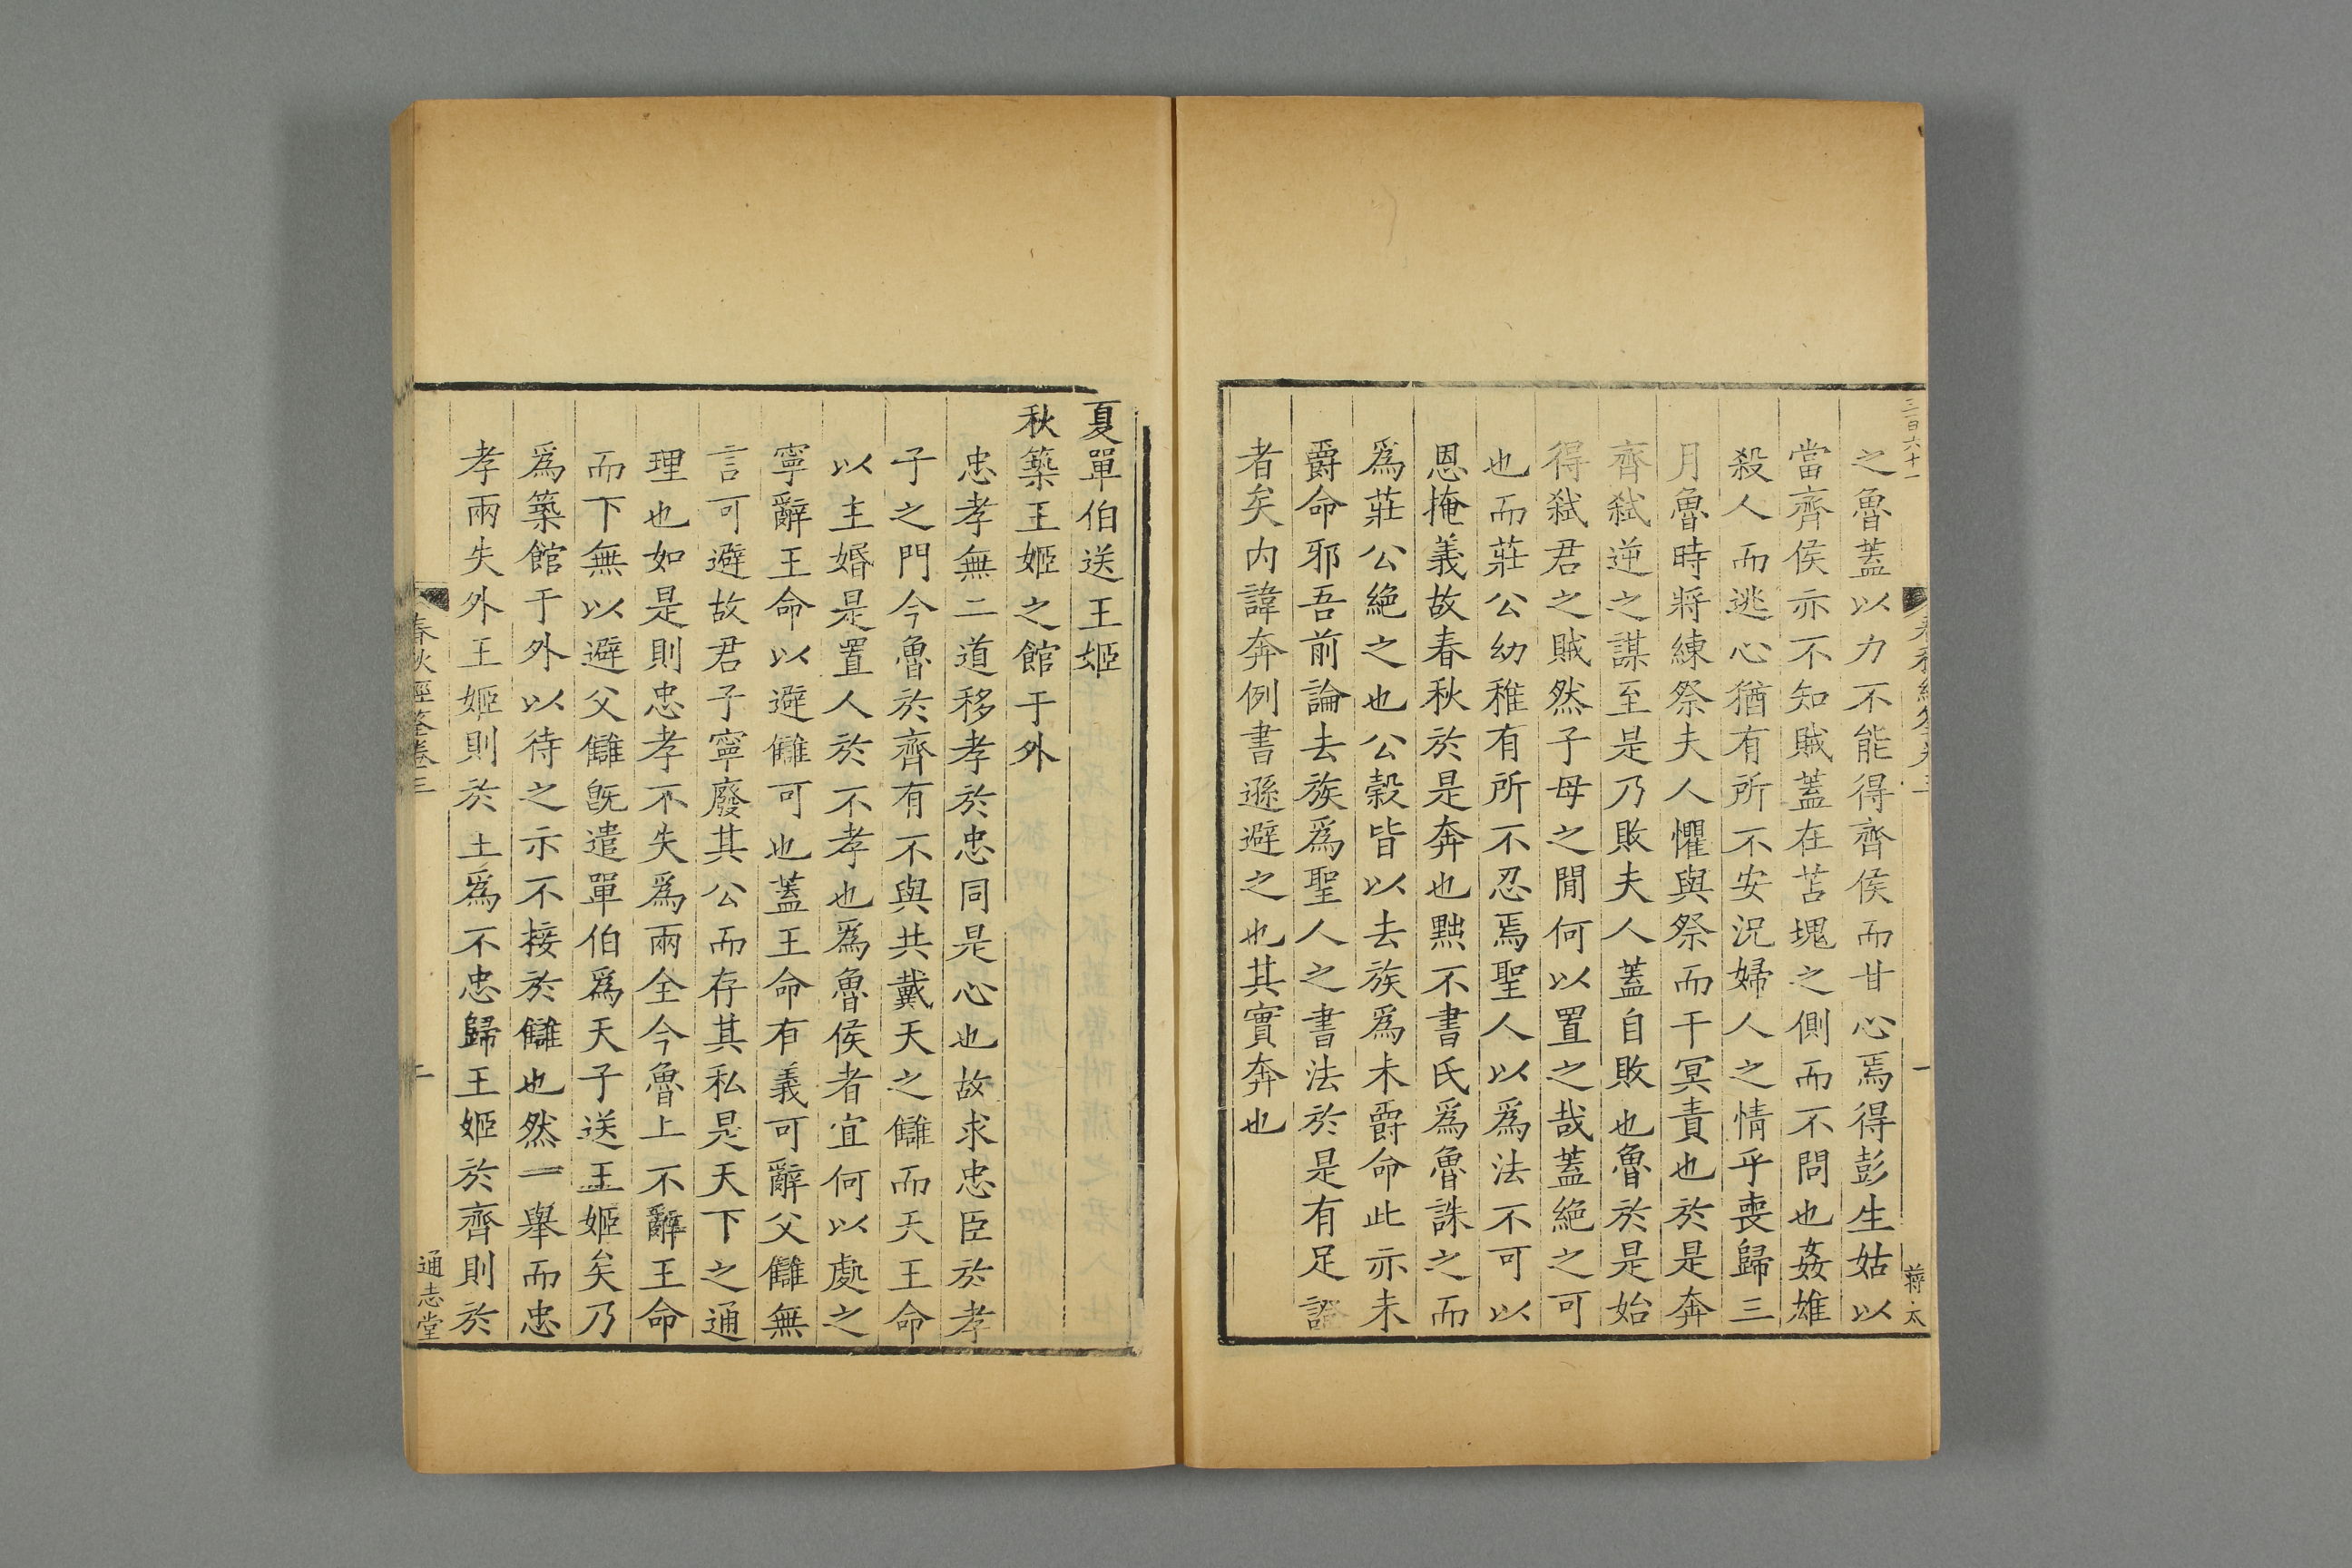 三百六十一
蔣太
之魯蓋以力不能得齊侯而甘心焉得彭生姑以
當齊侯亦不知賊蓋在苫塊之側而不問也姦雄
殺人而逃心猶有所不安況婦人之情乎喪歸三
月魯時將練祭夫人懼與祭而干冥責也於是奔
齊弑逆之謀至是乃敗夫人蓋自敗也魯於是始
得弑君之賊然子母之閒何以置之哉蓋絕之可
也而莊公幼稚有所不忍焉聖人以爲法不可以
恩掩義故春秋於是奔也黜不書氏爲魯誅之而
爲莊公絕之也公榖皆以去族爲未爵命此亦未
爵命邪吾前論去族爲聖人之書法於是有足證
者矣内諱奔例書遜避之也其實奔也
夏單伯送王姬
秋築王姬之館于外
忠孝無二道移孝於忠同是心也故求忠臣於孝
子之門今魯於齊有不與共戴天之讎而天王命
以主婚是置人於不孝也爲魯侯者宜何以處之
寧辭王命以避讎可也蓋王命有義可辭父讎無
言可避故君子寧廢其公而存其私是天下之通
理也如是則忠孝不失爲兩全今魯上不辭王命
而下無以避父讎旣遣單伯爲天子送王姬矣乃
爲築館于外以待之示不接於讎也然一舉而忠
孝兩失外王姬則於王爲不忠歸王姬於齊則於
春秋經筌卷三
二
通志堂